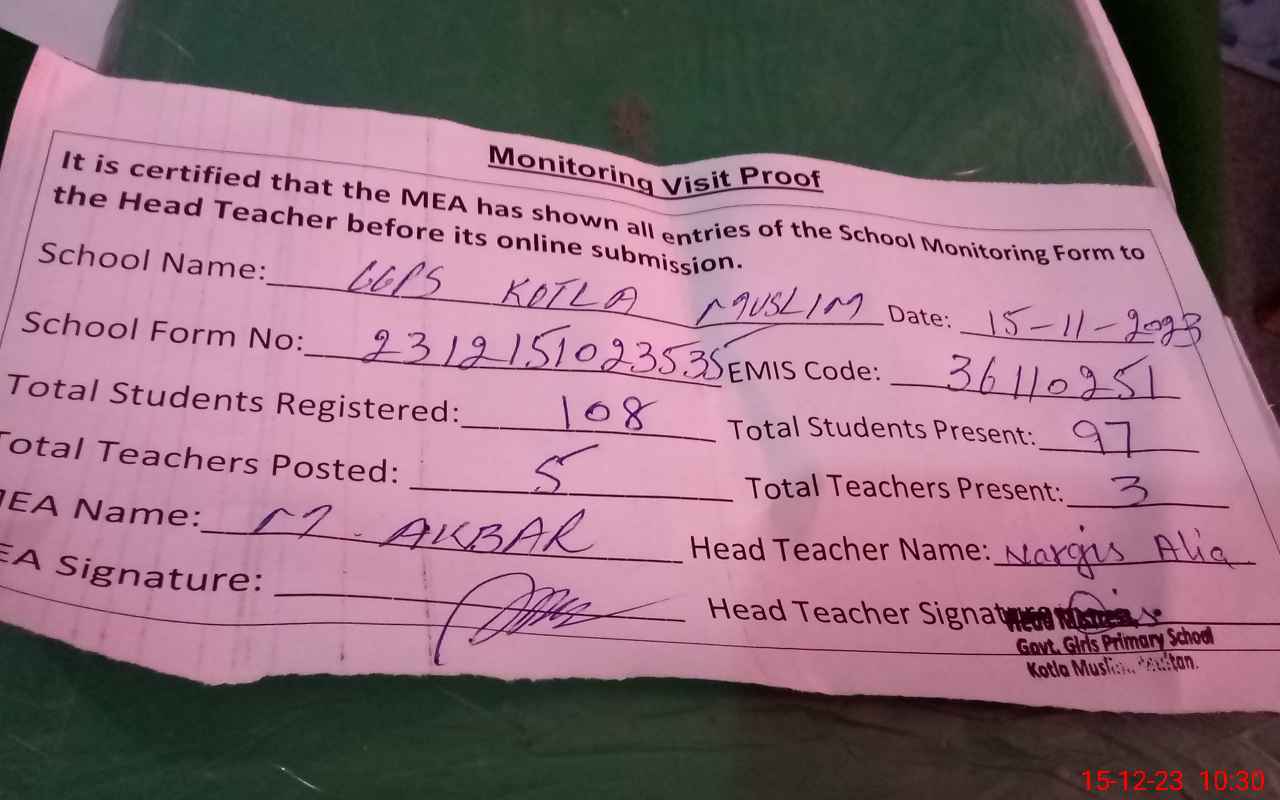 Monitoring Visit Proof
It is certified that the MEA has shown all entries of the School Monitoring Form to
the Head Teacher before its online submission.
School Name: GGPS KOTLA MUSLIM Date: 15-11-2023
School Form No: 2312151023535 EMIS Code: 36110251
Total Students Registered: 108 Total Students Present: 97
Total Teachers Posted: 5 Total Teachers Present: 3
MEA Name: M. AKBAR Head Teacher Name: Nargis Alia
EA Signature: Head Teacher Signature
Head Mistress
Govt. Girls Primary School
Kotla Muslim
15-12-23 10:30